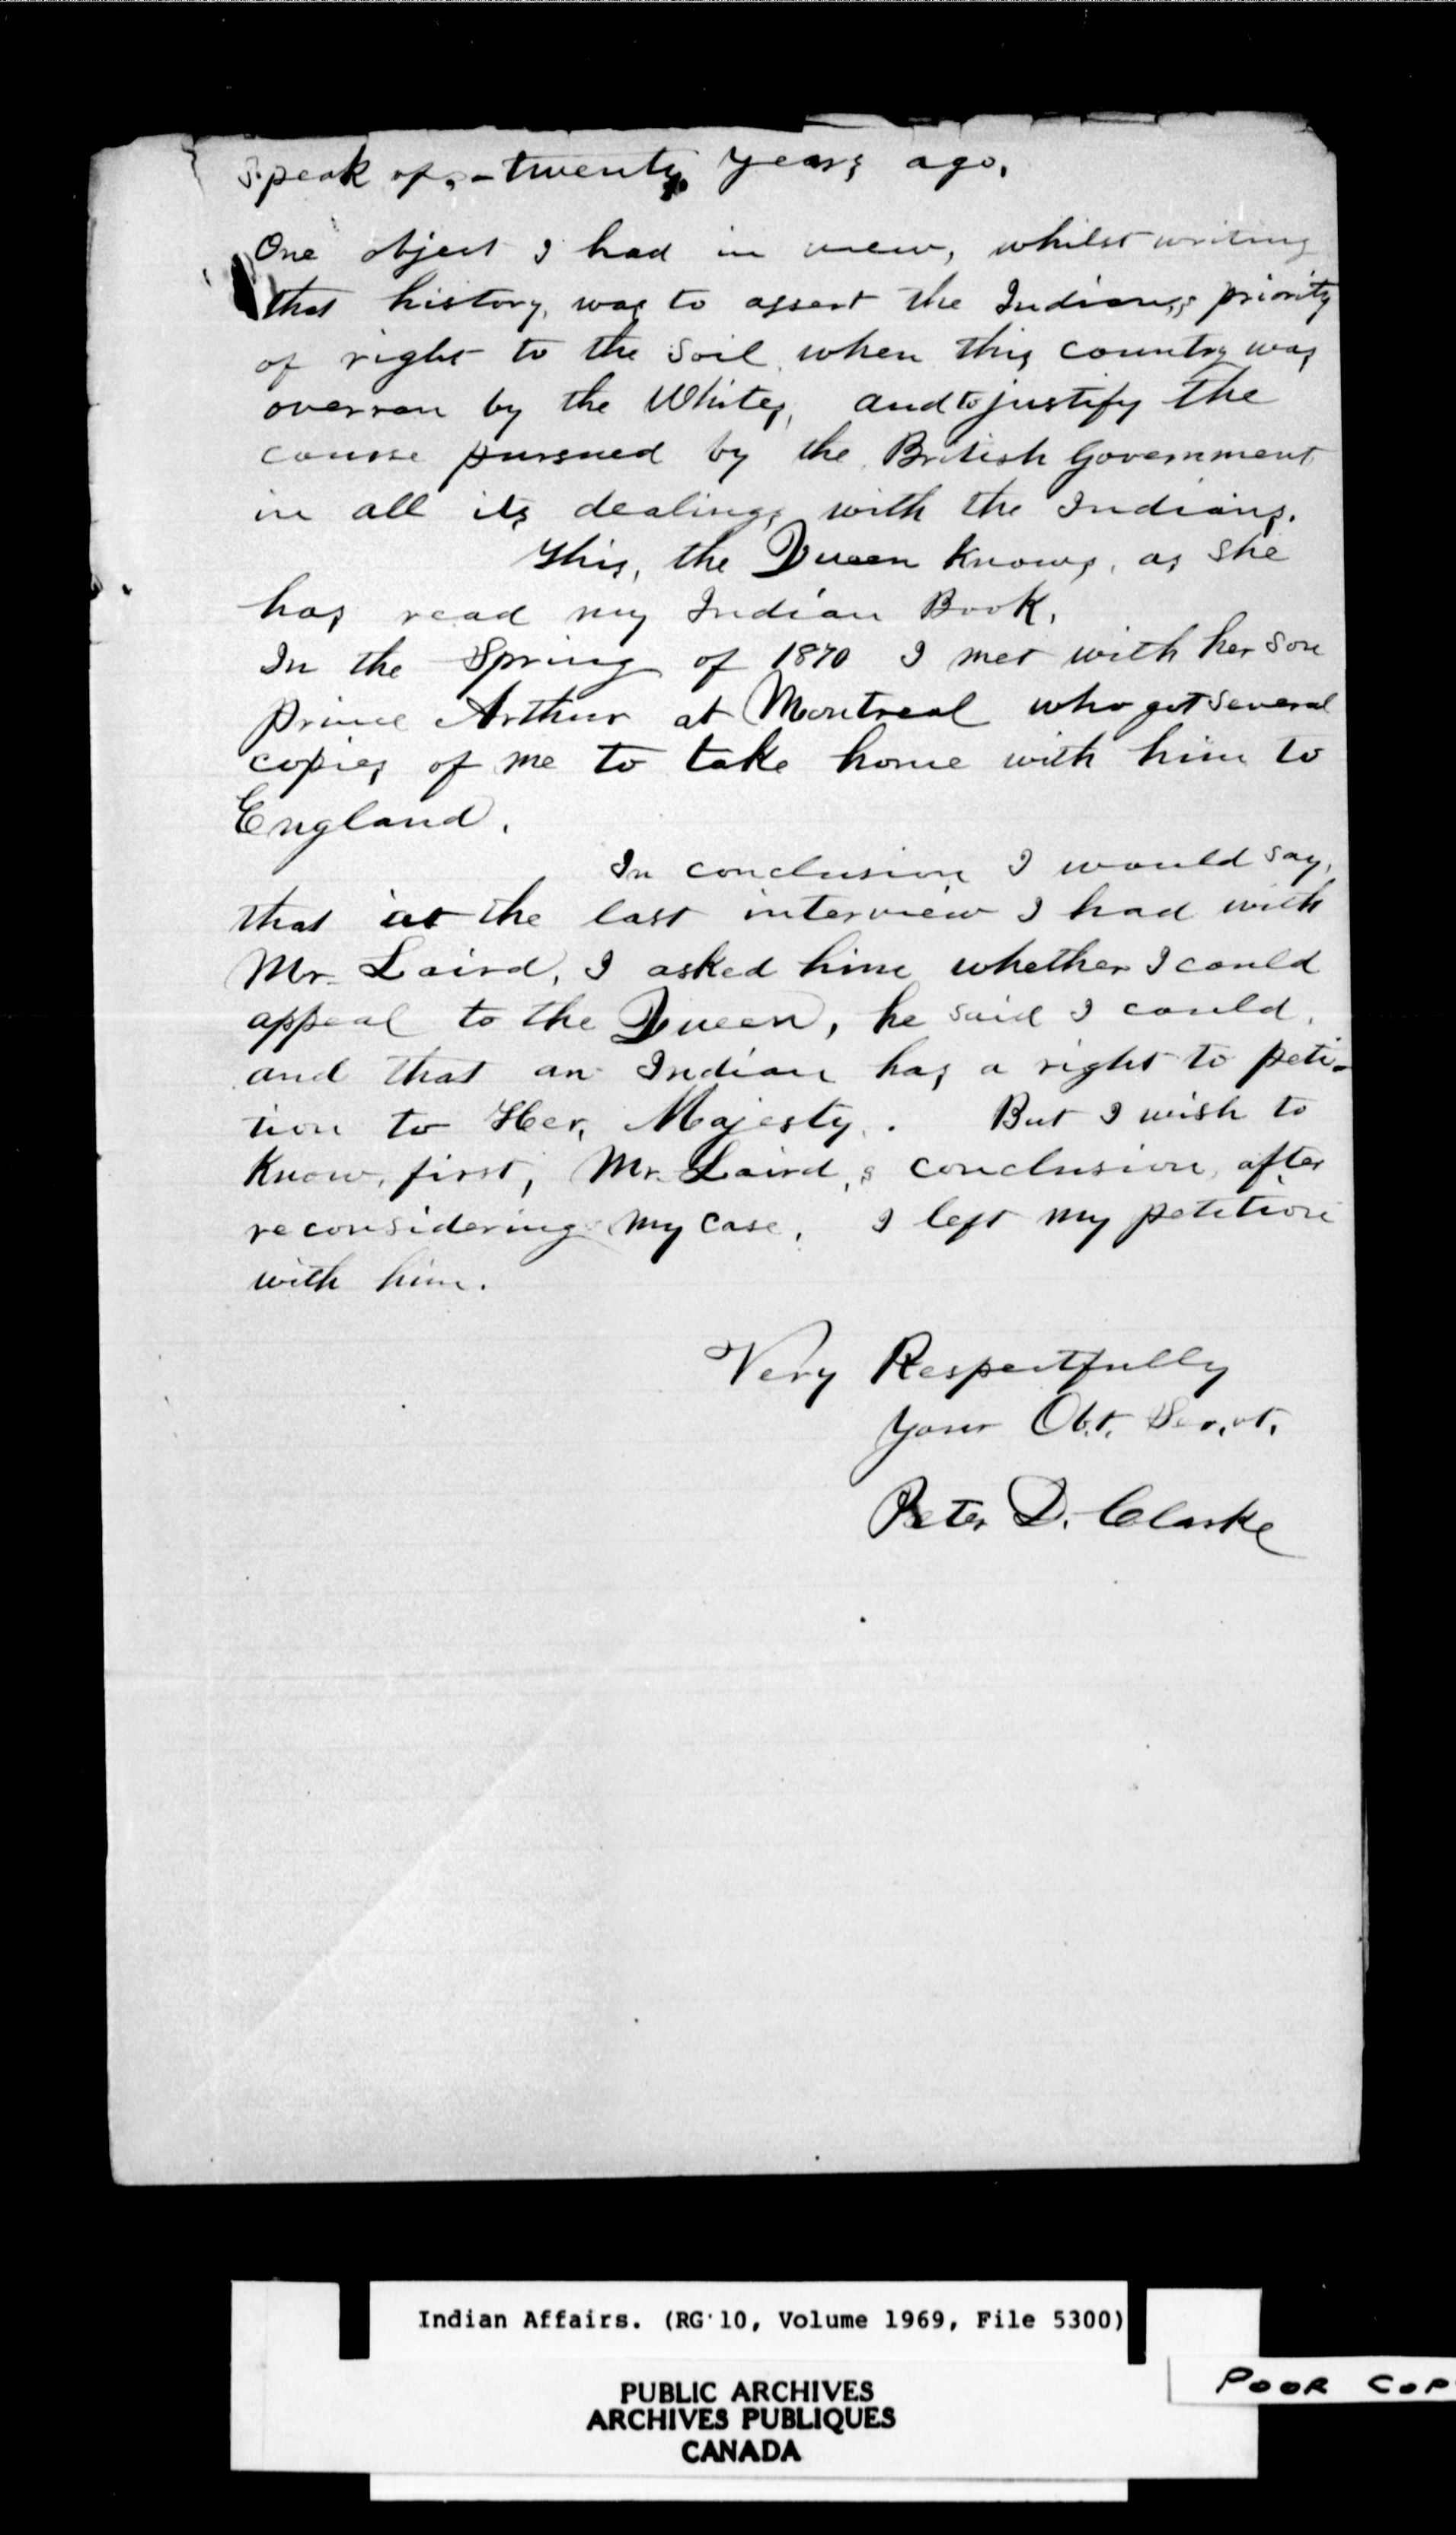 speak of, - twenty years ago.
One object I had in view, whilst writing
that history, was to assert the Indian,s priority
of right to the Soil, when this country was
overran by the Whites, and to justify the
course pursued by the British Government
in all its dealings with the Indians.
This, the Queen knows, as she
has read my Indian Book.
In the Spring of 1870 I met with her Son
Prince Arthur at Montreal who got several
copies of me to take home with him to
England.
In conclusion, I would say,
that at the last interview I had with
Mr. Laird, I asked him whether I could
appeal to the Queen, he said I could,
and that an Indian has a right to peti-
tion to Her, Majesty. But I wish to
Know, first, Mr. Laird,s conclusion, after
reconsidering my case. I left my petition
with him.
Very Respectfully
Your Obt. Ser.vt.
Peter D. Clarke
Indian Affairs. (RG 10, Volume 1969, File 5300)
PUBLIC ARCHIVES
ARCHIVES PUBLIQUES
CANADA
POOR COP